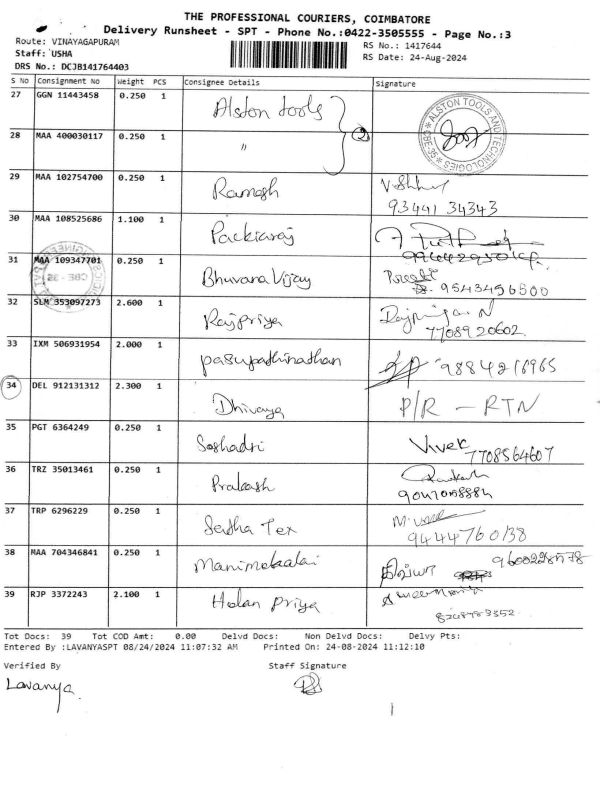 THE PROFESSIONAL COURIERS, COIMBATORE
Delivery Runsheet - SPT - Phone No.:0422-3505555 - Page No.:3
Route: VINAYAGAPURAM
RS No.: 1417644
Staff: USHA
RS Date: 24-Aug-2024
DRS No.: DCJB141764403
S No Consignment No Weight PCS Consignee Details Signature
27 GGN 11443458 0.250 1 Alston tools
ALSTON TOOLS AND TECHNOLOGIES CBE-35
28 MAA 400030117 0.250 1 " 2
29 MAA 102754700 0.250 1 Ramesh
93441 34343
30 MAA 108525686 1.100 1 Packiaraj
31 MAA 109347701 0.250 1 Bhuvana Vijay
9543456500
32 SLM 353097273 2.600 1 Rajpriya
7708920602
33 IXM 506931954 2.000 1 pasupathinathan 9884216965
34 DEL 912131312 2.300 1 Dhivaya P/R - RTN
35 PGT 6364249 0.250 1 Seshadri Vivek
7708564607
36 TRZ 35013461 0.250 1 Prakash
37 TRP 6296229 0.250 1 Tex
9444760138
38 MAA 704346841 0.250 1 Manimekaalai
39 RJP 3372243 2.100 1 Helan Priya
Tot Docs: 39 Tot COD Amt: 0.00 Delvd Docs: Non Delvd Docs: Delvy Pts:
Entered By :LAVANYASPT 08/24/2024 11:07:32 AM Printed On: 24-08-2024 11:12:10
Verified By Staff Signature
Lavanya.